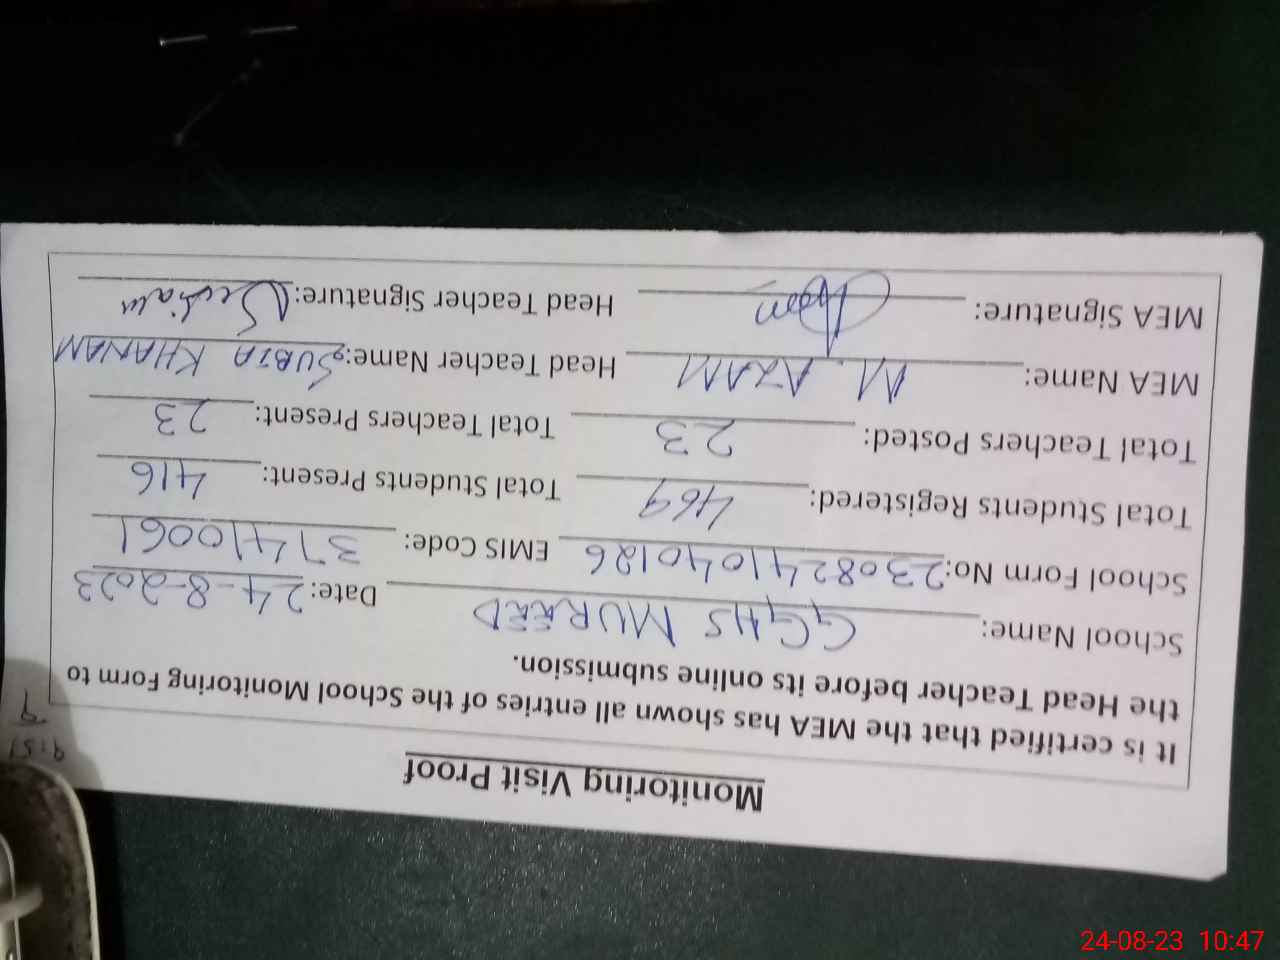 Monitoring Visit Proof
It is certified that the MEA has shown all entries of the School Monitoring Form to
the Head Teacher before its online submission.
School Name: GGHS MUREED Date: 24-8-2023
School Form No: 2308241040126 EMIS Code: 37410061
Total Students Registered: 469 Total Students Present: 416
Total Teachers Posted: 23 Total Teachers Present: 23
MEA Name: M. AZAM Head Teacher Name: SUBIA KHANAM
MEA Signature: Head Teacher Signature:
24-08-23 10:47